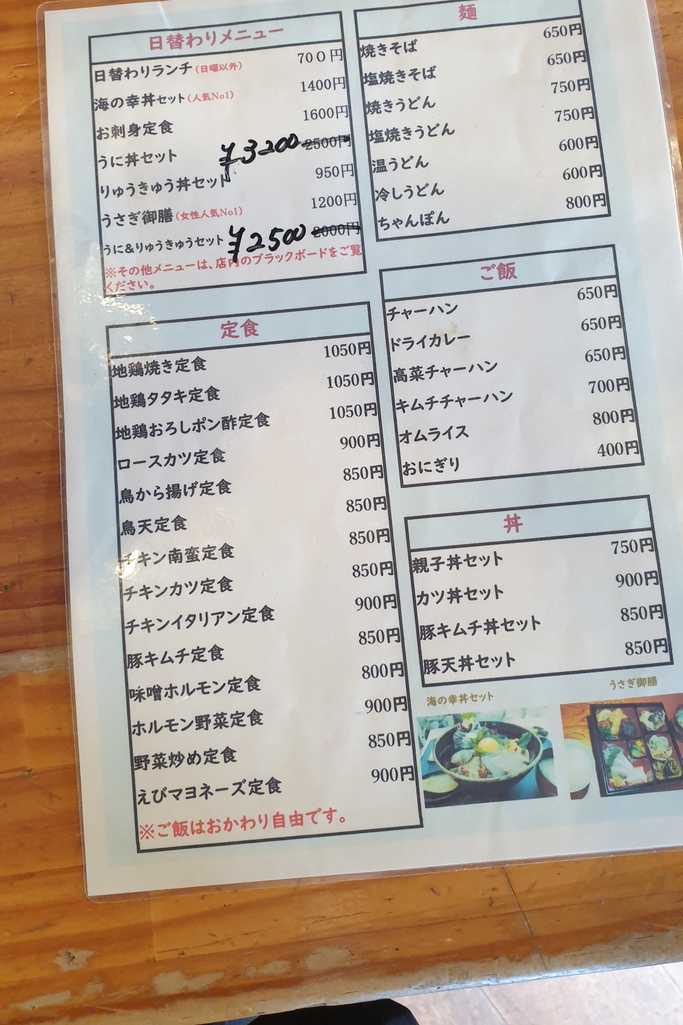 日替わりメニュー
日替わりランチ(日曜以外) 700円
海の幸丼セット(人気No1) 1400円
お刺身定食 1600円
うに丼セット ¥3200 2500円
りゅうきゅう丼セット 950円
うさぎ御膳(女性人気No1) 1200円
うに&りゅうきゅうセット ¥2500 2000円
※その他メニューは、店内のブラックボードをご覧
ください。
定食
地鶏焼き定食 1050円
地鶏タタキ定食 1050円
地鶏おろしポン酢定食 1050円
ロースカツ定食 900円
鳥から揚げ定食 850円
鳥天定食 850円
チキン南蛮定食 850円
チキンカツ定食 850円
チキンイタリアン定食 900円
豚キムチ定食 850円
味噌ホルモン定食 800円
ホルモン野菜定食 900円
野菜炒め定食 850円
えびマヨネーズ定食 900円
※ご飯はおかわり自由です。
麺
焼きそば 650円
塩焼きそば 650円
焼きうどん 750円
塩焼きうどん 750円
温うどん 600円
冷しうどん 600円
ちゃんぽん 800円
ご飯
チャーハン 650円
ドライカレー 650円
高菜チャーハン 650円
キムチチャーハン 700円
オムライス 800円
おにぎり 400円
丼
親子丼セット 750円
カツ丼セット 900円
豚キムチ丼セット 850円
豚天丼セット 850円
海の幸丼セット
うさぎ御膳